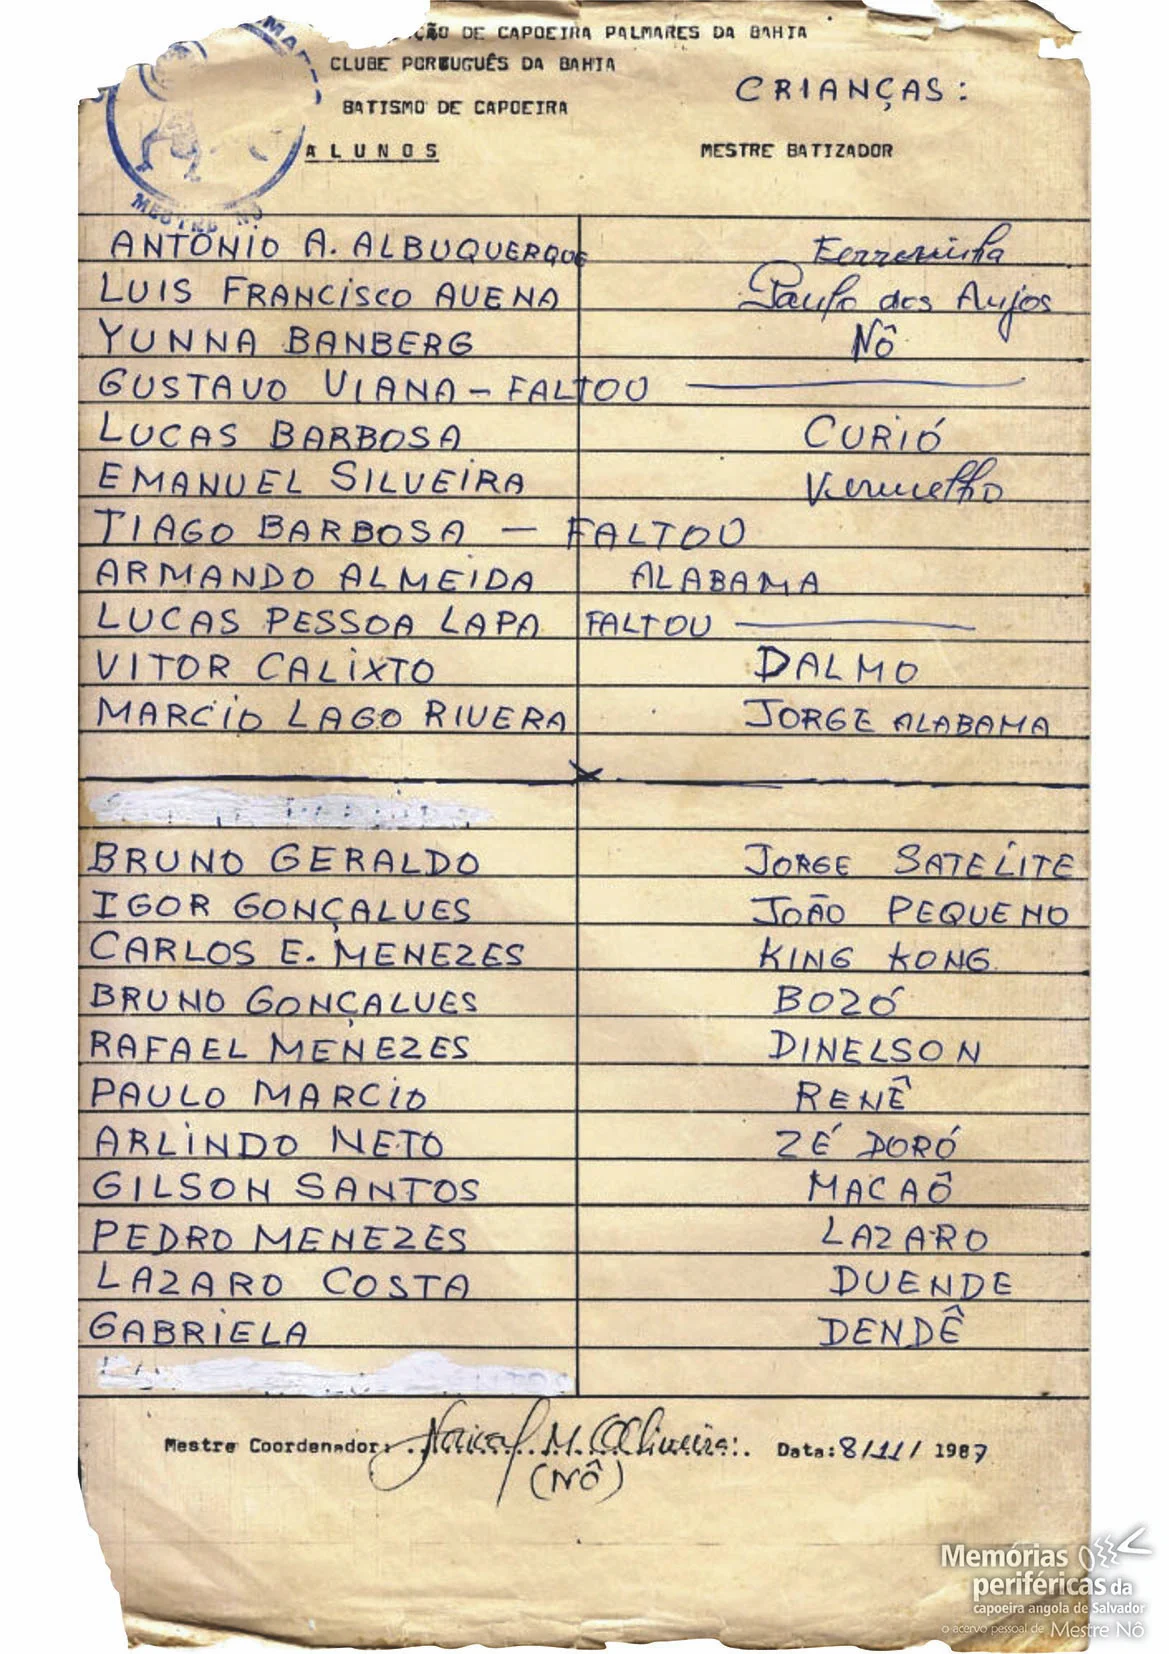 DE CAPOEIRA PALMARES DA BAHIA
CLUBE PORTUGUÊS DA BAHIA
CRIANÇAS:
BATISMO DE CAPOEIRA
ALUNOS MESTRE BATIZADOR
MESTRE NÔ
ANTÔNIO A. ALBUQUERQUE Ferreirinha
LUIS FRANCISCO AVENA Paulo dos Anjos
YUNNA BANBERG Nô
GUSTAVO VIANA - FALTOU
LUCAS BARBOSA CURIÓ
EMANUEL SILVEIRA Vermelho
TIAGO BARBOSA - FALTOU
ARMANDO ALMEIDA ALABAMA
LUCAS PESSOA LAPA FALTOU
VITOR CALIXTO DALMO
MARCIO LAGO RIVERA JORGE ALABAMA
BRUNO GERALDO JORGE SATELITE
IGOR GONÇALVES JOÃO PEQUENO
CARLOS E. MENEZES KING KONG
BRUNO GONÇALVES BOZÓ
RAFAEL MENEZES DINELSON
PAULO MARCIO RENÊ
ARLINDO NETO ZÉ DORÓ
GILSON SANTOS MACAÔ
PEDRO MENEZES LAZARO
LAZARO COSTA DUENDE
GABRIELA DENDÊ
Mestre Coordenador: Norival M. Oliveira Data: 8/11/1987
(NÔ)
Memórias
periféricas da
capoeira angola de Salvador
o acervo pessoal de Mestre Nô